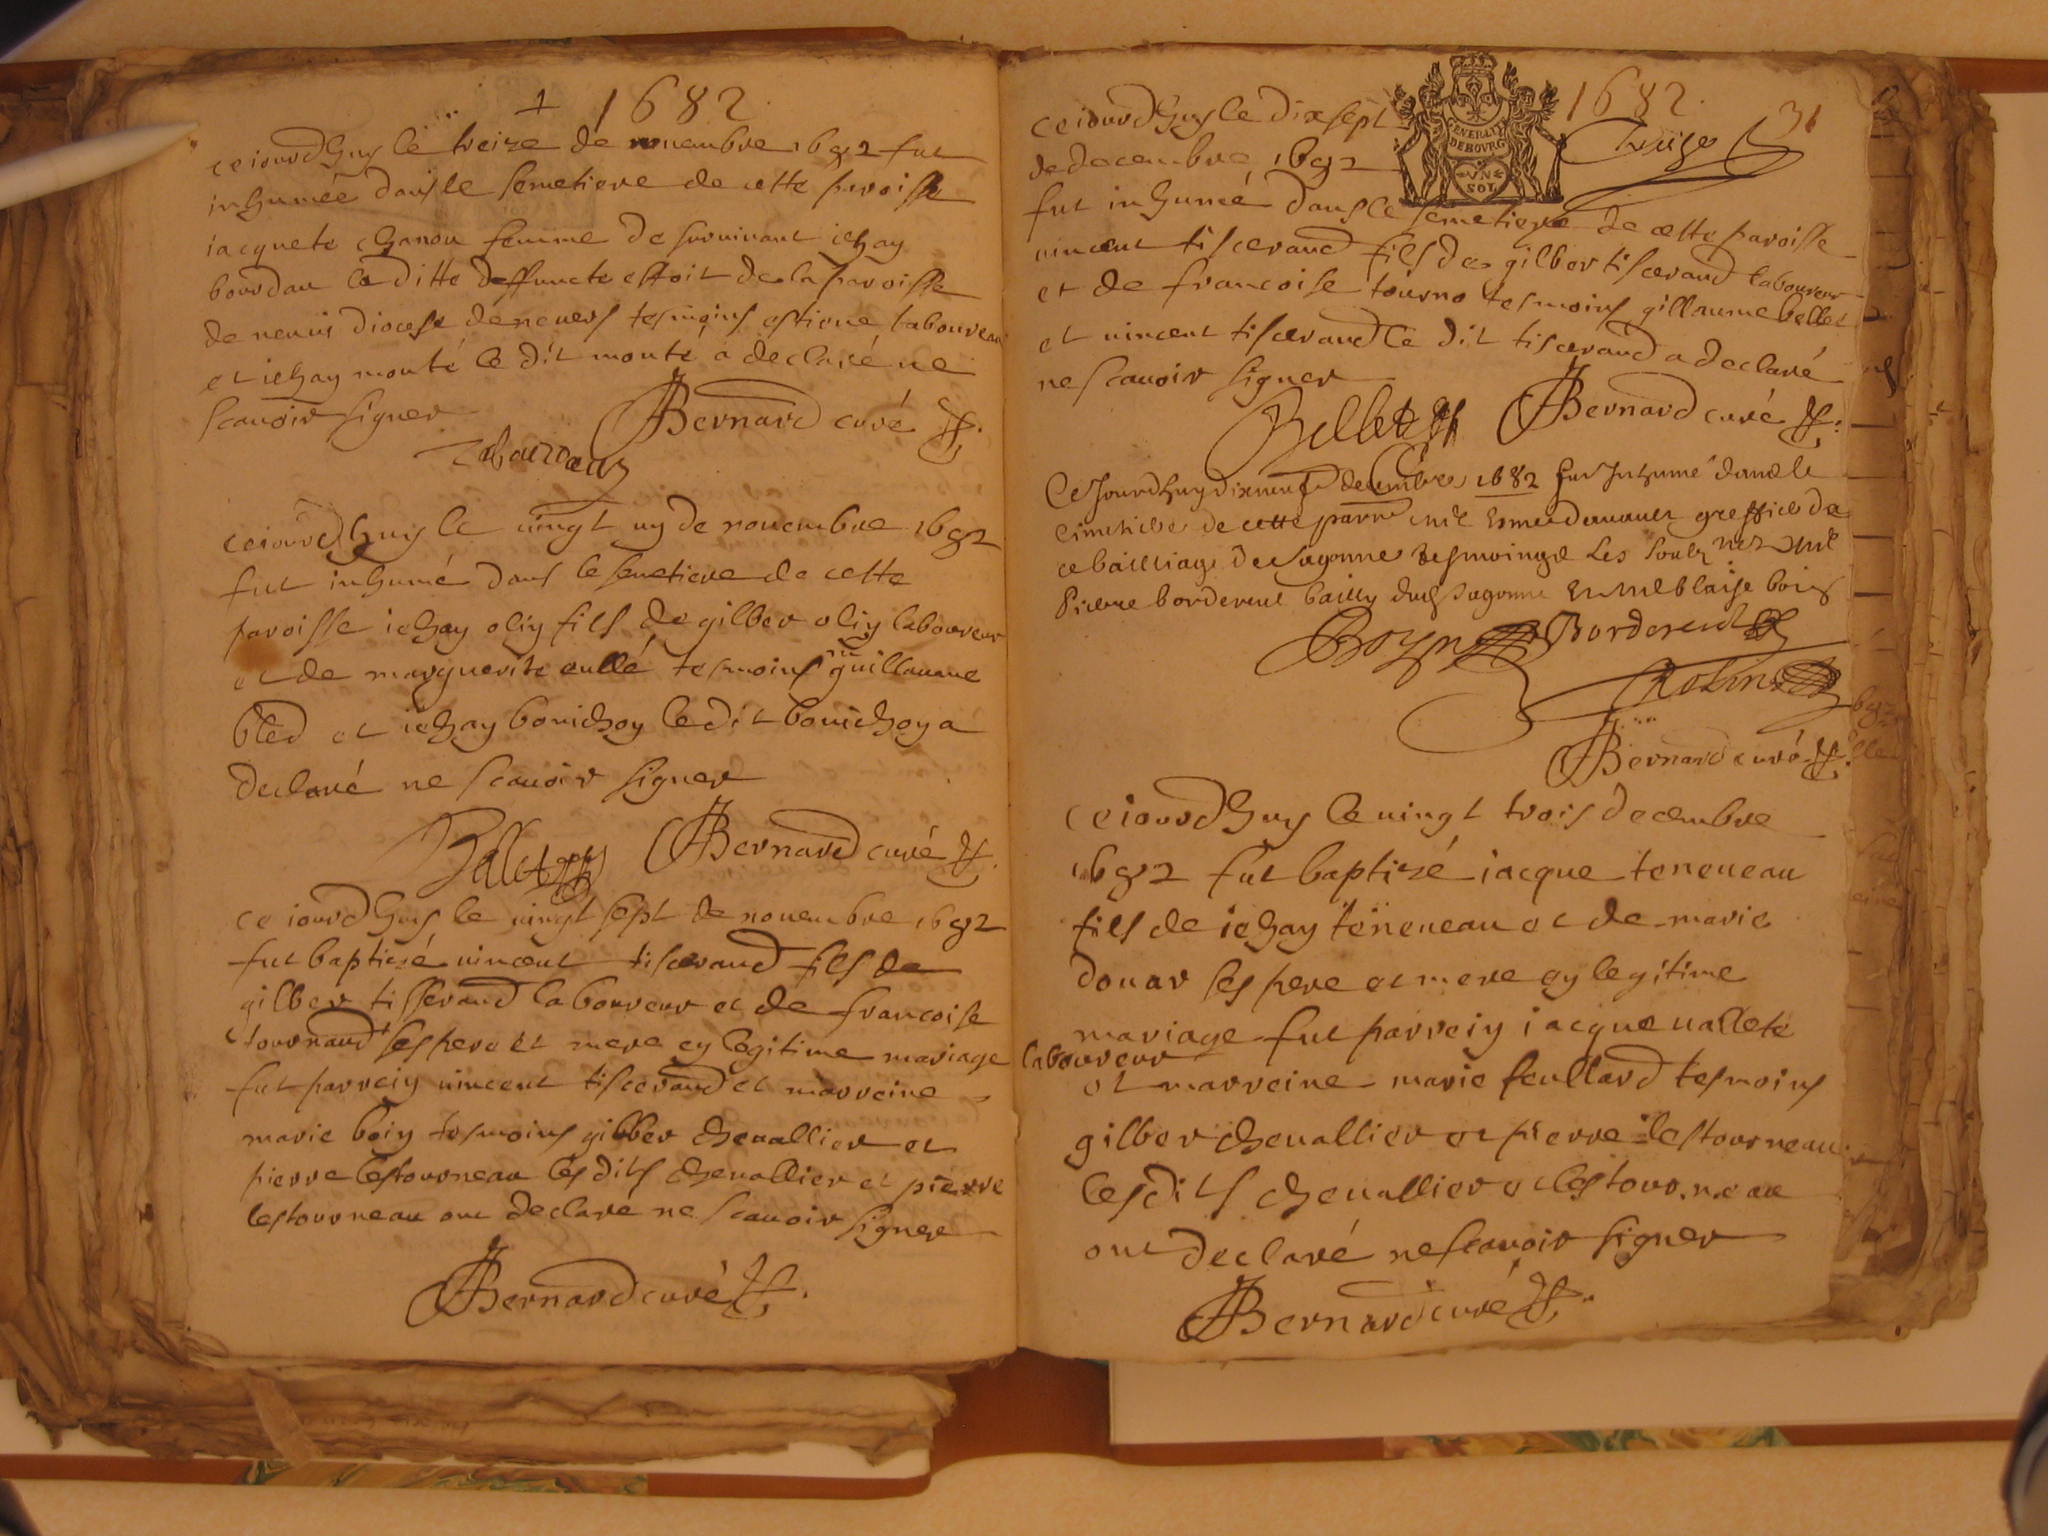 1682
ce iourdhuy le treize de nouembre 1682 fut
inhumée dans le semetiere de cette paroisse
iacquete chanou femme de suruiuant iehan
bourdau la ditte deffuncte estoit de la paroisse
de neuuis diocese de neuers tesmoins estiene taboureau
et iehan monté le dit monté a declaré ne
scauoir signer Bernard curé
Taboureau
ce iourdhuy le uingt un de nouembre 1682
fut inhumé dans le semetiere de cette
paroisse iehan olin fils de gilber olin laboureur
et de marguerite tesmoins guillaume
bled et iehan bouichon le dit bouichon a
declaré ne scauoir signer
Bernard curé
ce iourdhuy le uingt sept de nouembre 1682
fut baptizé uincent tiscerand fils de
gilber tisserand laboureur et de francoise
tournaud ses pere et mere en legitime mariage
fut parrein uincent tiscerand et marreine
marie boin tesmoins gilber cheuallier et
pierre lestourneau les dits cheuallier et pierre
lestourneau ont declaré ne scauoir signer
Bernard curé
1682
31
GENERLITE
DE BOVRG
VN
SOL
ce iourdhuy le dixsept
de decembre 1682
fut inhumé dans le semetiere de cette paroisse
uincent tiscerand fils de gilber tiscerand laboureur
et de francoise tourno tesmoins gillaume bellet
et uincent tiscerand le dit tiscerand a declaré
ne scauoir signer
Bellet Bernard curé
Ce Jourdhuy dixneuf decembre 1682 fut Inhumé dans le
cimetiere de cette parr greffier de
ce bailliage de Sagonne tesmoings Les soubz
Pierre bordereul bailly dud Sagonne blaise boin
Boyn Bordereul
Robin
Bernard curé
ce iourdhuy le uingt trois decembre
1682 fut baptizé iacque teneneau
fils de iehan teneneau et de marie
douar ses pere et mere en legitime
mariage fut parrein iacque uallete
laboureur
et marreine marie feullard tesmoins
gilber cheuallier et pierre lestourneau
les dits cheuallier et lestourneau
ont declaré ne scauoir signer
Bernard curé